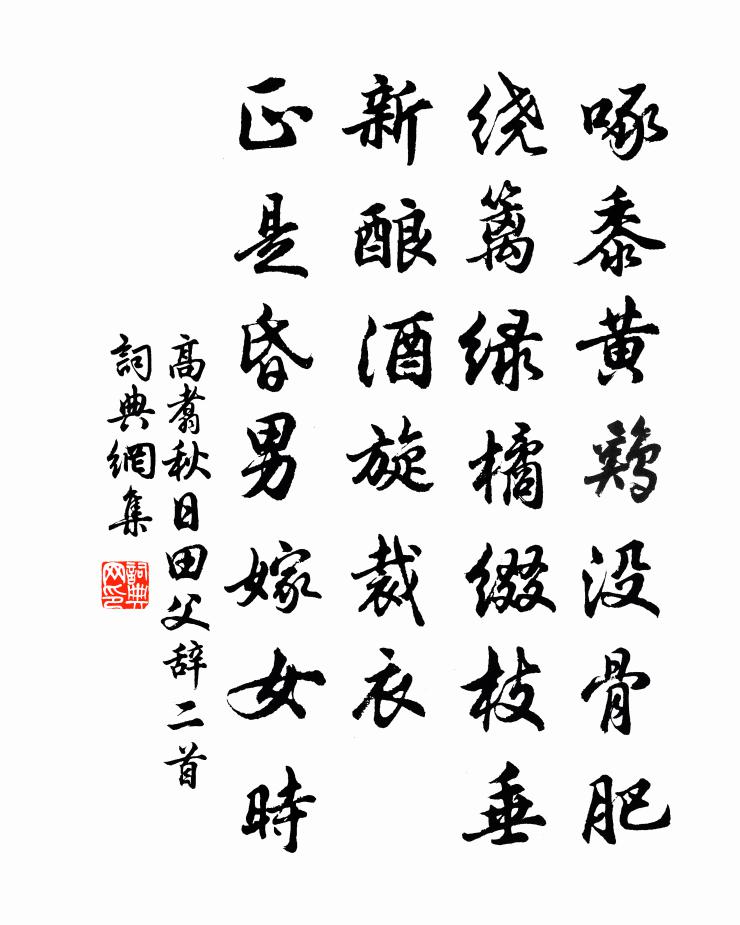 啄黍黄鸡没骨肥
绕篱绿橘缀枝垂
新酿酒旋裁衣
正是昏男嫁女時
高翥秋日田父辞二首
詞典網集
詞典网印